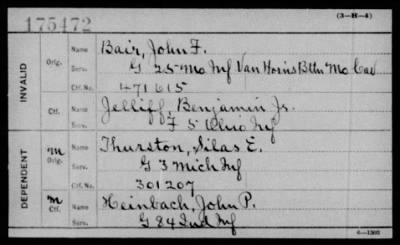 175472
(3-H-4)
INVALID
Orig. Name Bair, John F.
Serv. G 25 Mo Inf Van Horns Bttn Mo Cav
Ctf. No. 471615
Ctf. Name Jelliff, Benjamin Jr.
Serv. F 5 Ohio Inf
DEPENDENT
M Orig. Name Thurston, Silas E.
Serv. G 3 Mich Inf
Ctf. No. 301207
M Ctf. Name Heinbach, John P.
Serv. G 84 Ind Inf